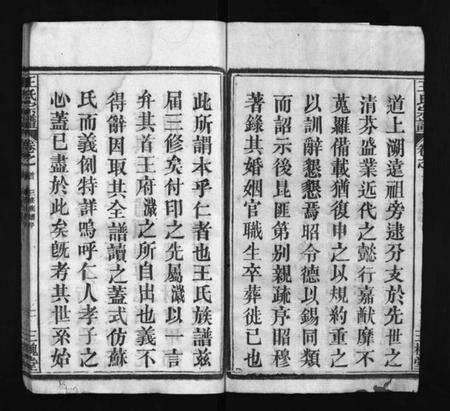 道上溯遠祖旁逮分支於先世之
清芬盛業近代之懿行嘉猷靡不
蒐羅備載猶復申之以規約重之
以訓辭懇懇焉昭令德以錫同類
而詔示後昆匪第別親疏序昭穆
著錄其婚姻官職生卒葬徙已也
此所謂本乎仁者也王氏族譜茲
屆三修矣付印之先屬濊以一言
弁其首王府濊之所自出也義不
得辭因取其全譜讀之蓋式仿蘇
氏而義例特詳嗚呼仁人孝子之
心蓋已盡於此矣旣考其世系始
王氏宗譜
卷之首
三槐堂